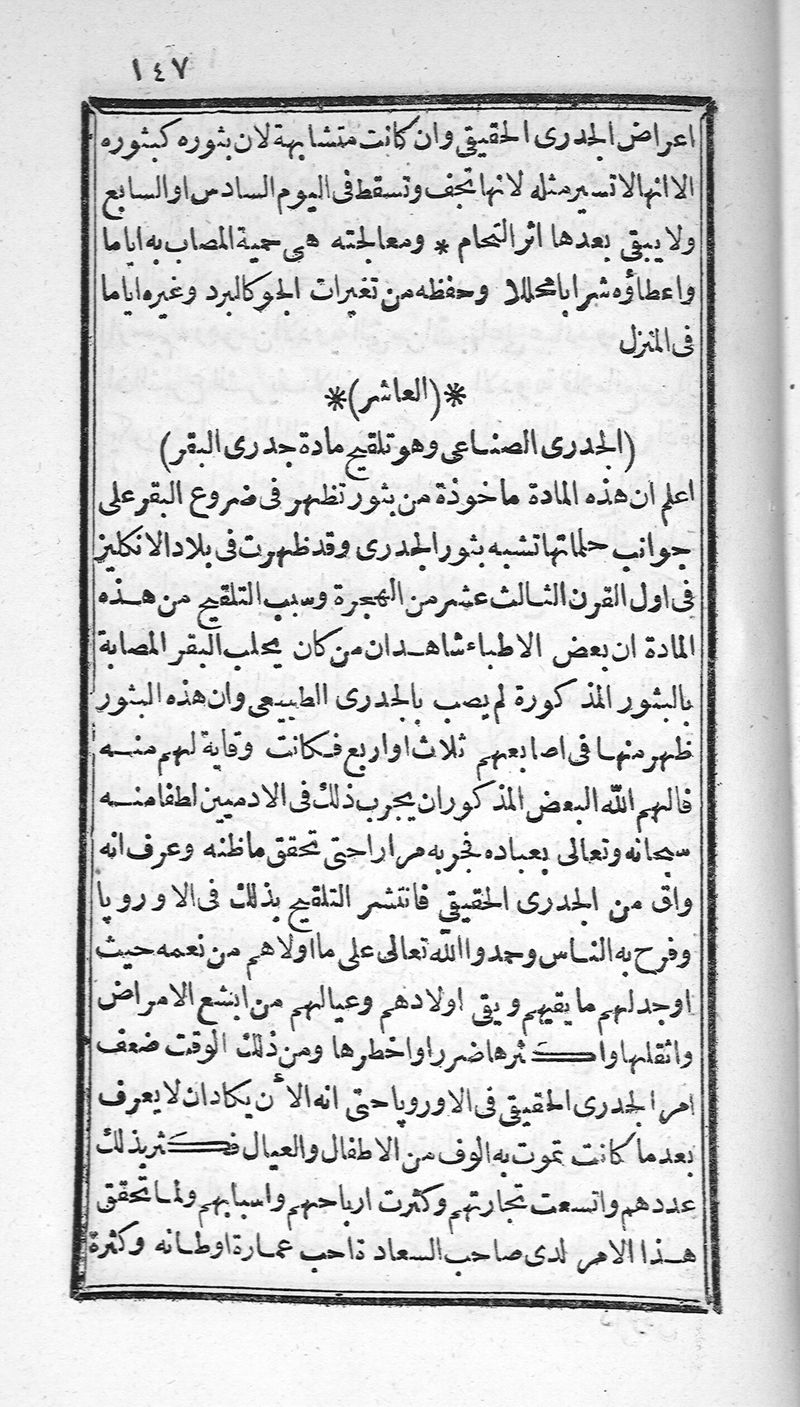 ١٤٧
اعراض الجدرى الحقيقي وان كانت متشابهة لان بثوره كبثوره
الا انها لا تسير مثله لانها تجف وتسقط فى اليوم السادس او السابع
ولا يبقى بعدها اثر التحام * ومعالجته هى حمية المصاب به اياما
واعطاؤه شرابا محللا وحفظه من تغيرات الجو كالبرد وغيره اياما
فى المنزل
*(العاشر)*
(الجدرى الصناعى وهو تلقيح مادة جدرى البقر)
اعلم ان هذه المادة ماخوذة من بثور تظهر فى ضروع البقر على
جوانب حلماتها تشبه بثور الجدرى وقد ظهرت فى بلاد الانكليز
فى اول القرن الثالث عشر من الهجرة وسبب التلقيح من هذه
المادة ان بعض الاطباء شاهد ان من كان يحلب البقر المصابة
بالبثور المذكورة لم يصب بالجدرى الطبيعى وان هذه البثور
ظهر منها فى اصابعهم ثلاث او اربع فكانت وقاية لهم منه
فالهم الله البعض المذكور ان يجرب ذلك فى الادميين لطفا منه
سبحانه وتعالى بعباده فجربه مرارا حتى تحقق ما ظنه وعرف انه
واق من الجدرى الحقيقي فانتشر التلقيح بذلك فى الاوروپا
وفرح به الناس وحمدوا الله تعالى على ما اولاهم من نعمه حيث
اوجد لهم ما يقيهم ويقى اولادهم وعيالهم من ابشع الامراض
واثقلها واكثرها ضررا واخطرها ومن ذلك الوقت ضعف
امر الجدرى الحقيقي فى الاوروپا حتى انه الأن يكاد ان لا يعرف
بعد ما كانت تموت به الوف من الاطفال والعيال فكثر بذلك
عددهم واتسعت تجارتهم وكثرت ارباحهم واسبابهم ولما تحقق
هذا الامر لدى صاحب السعادة احب عمارة اوطانه وكثرة